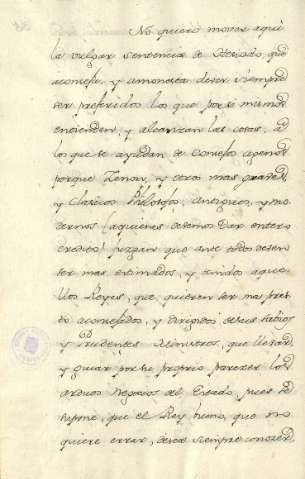 No quiero mover aqui
la vulgar sentencia de Hesiodo, que
aconseja, y amonesta deser siempre
ser preferidos los que por si mismos
entienden, y alcanzan las cosas, à
los que se ayudan de Consejo ageno
porque Zenon, y otros mas graves
y Clasicos Philosofos antiguos, y mo
dernos (aquienes devemos Dar entero
credito) juzgan que ante todo deven
ser mas estimados, y tenido aque
llos Reyes, que quieren ser mas pres
to aconsejados, y dirigidos desus Sabios
y Prudentes Ministros, que llevar
y guiar por su proprio parecer los
arduos Negocios del Estado, pues se
supone, que el Rey bueno, que no
quiere errar, deve siempre conocer